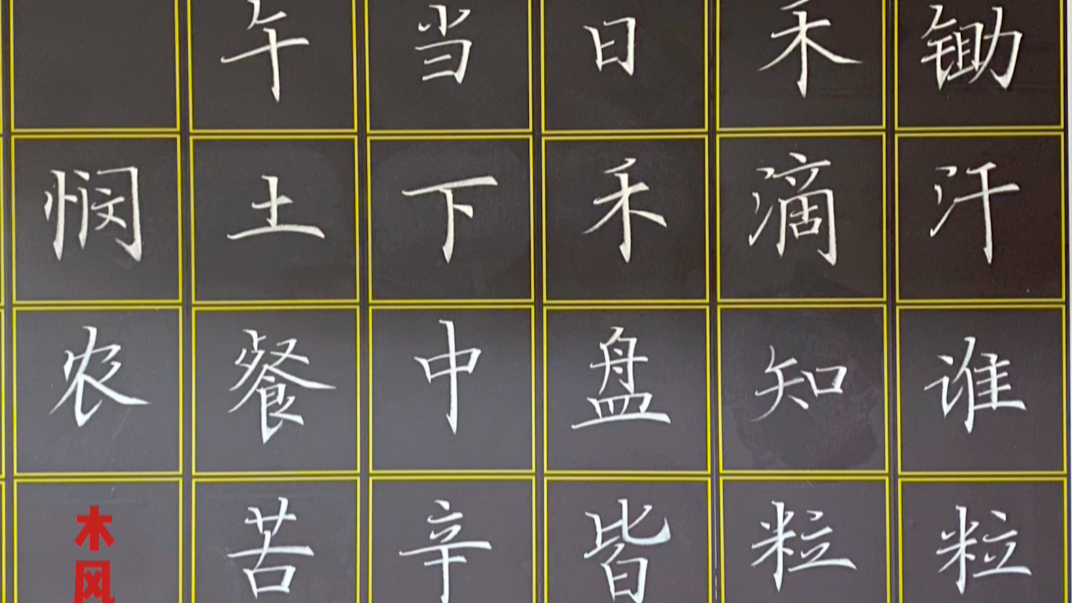 锄禾日当午
汗滴禾下土
谁知盘中餐
粒粒皆辛苦
悯农
木风